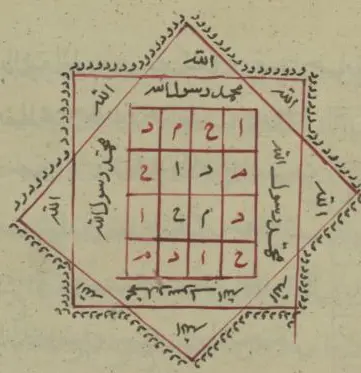 الله
الله
الله
محمد رسول الله
ا ح م د
م د ا ح
د م ح ا
ح ا د م
محمد رسول الله
محمد رسول الله
محمد رسول الله
الله
الله
الله
الله
الله